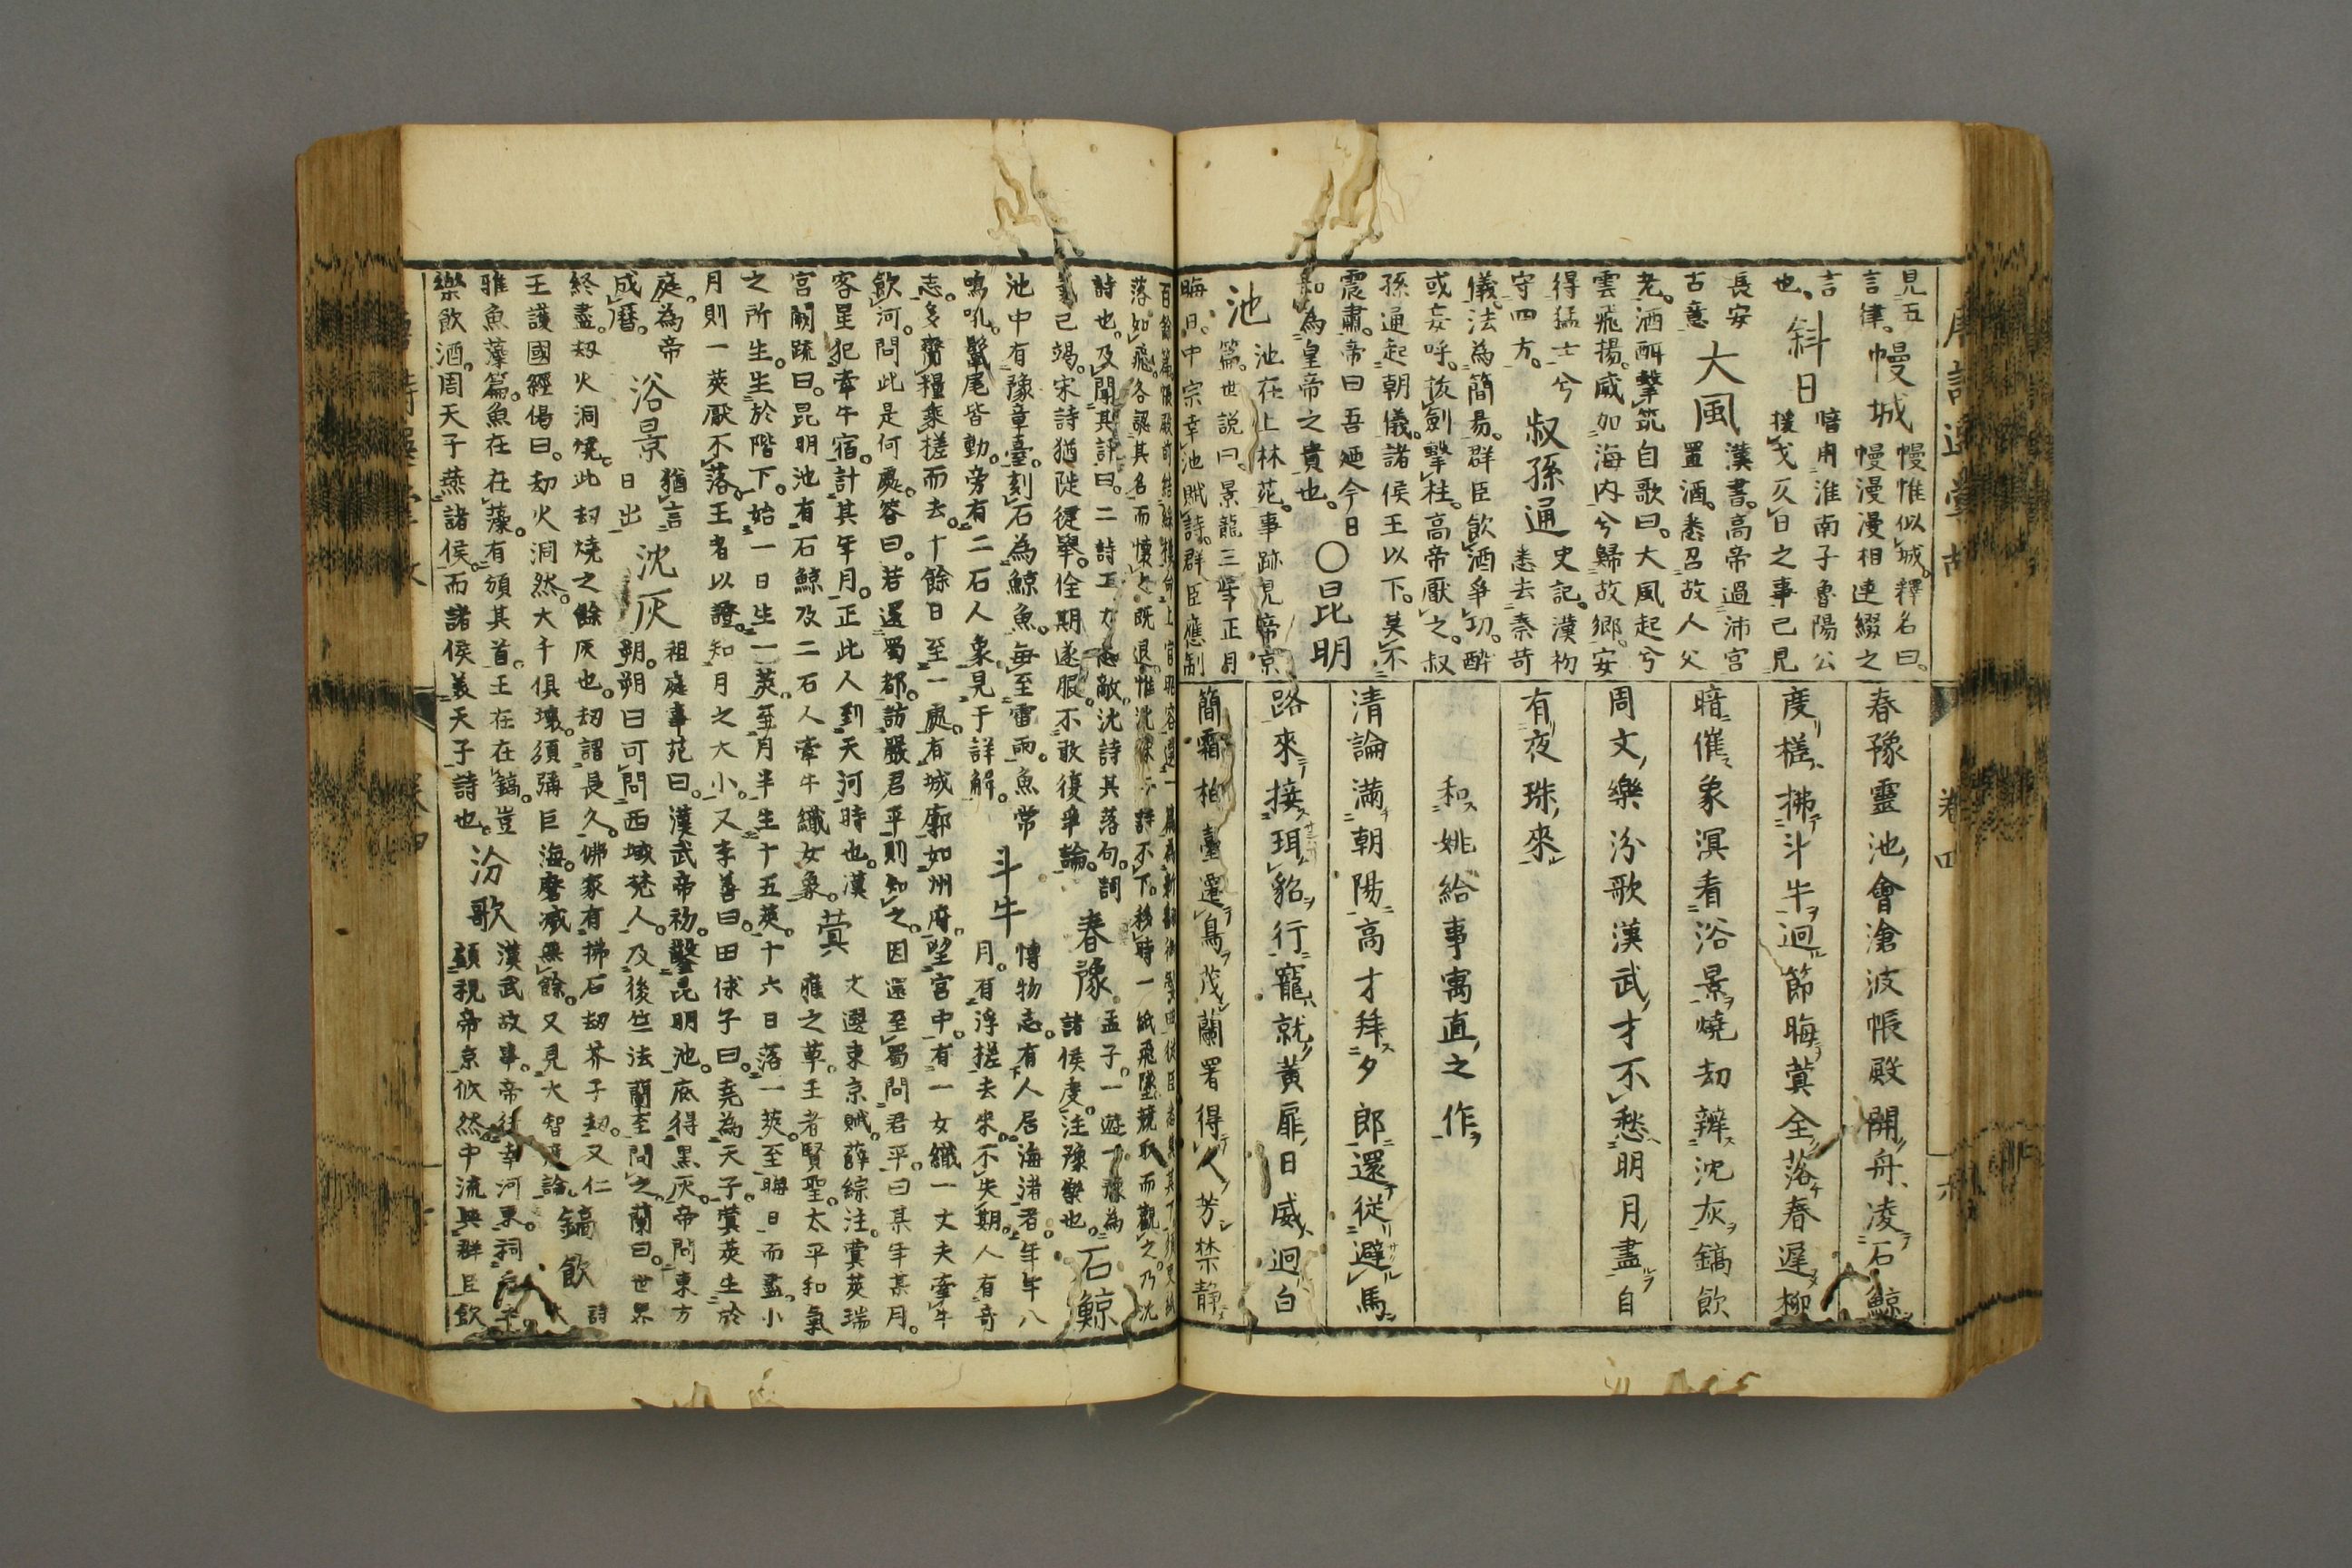 見五
言律。幔城 幔帷似城。釋名曰。
幔漫漫相連綴之
言
也。斜日 暗用淮南子魯陽公
援戈反日之事已見
長安
古意 大風 漢書。高帝過沛宮
置酒。悉召故人父
老。酒酣擊筑自歌曰。大風起兮
雲飛揚。威如海内兮歸故鄉。安
得猛士兮
守四方。叔孫通 史記。漢初
悉去秦苛
儀。法為簡易。群臣飲酒爭功。醉
或妄呼。拔劍擊柱。高帝厭之。叔
孫通起朝儀。諸侯王以下。莫不
震肅。帝曰吾廼今日
知為皇帝之貴也。〇昆明
池 池在上林苑。事跡見帝京
篇。世説曰。景龍三年正月
晦日。中宗幸池賦詩。群臣應制
春豫靈池會滄波帳殿開舟凌石鯨
度槎拂斗牛迴節晦蓂全落春遲柳
暗催象溟看浴景燒劫辨沈灰鎬飲
周文樂汾歌漢武才不愁明月盡自
有夜珠來
和姚給事寓直之作
清論滿朝陽高才拜夕郎還從避馬
路來接珥貂行寵就黃扉日威迴白
簡霜柏臺遷鳥茂蘭署得人芳禁静
落如飛。各認其名而懷之。既退。惟沈宋二詩不下。移時一紙飛墜。競取而觀之。乃沈
詩也。及聞其評曰。二詩工力悉敵。沈詩其落句。詞
氣已竭。宋詩猶陡健擧。佺期遂服。不敢復爭論。春豫 孟子。一遊一豫為
諸侯度。注豫樂也。石鯨
池中有豫章臺。刻石為鯨魚。每至雷雨。魚常
鳴吼。鬣尾皆動。旁有二石人象。見于詳解。斗牛 博物志。有人居海渚者。年年八
月。有浮槎去來。不失期。人有奇
志。多齎糧乘槎而去。十餘日至一處。有城廓如州府。望宮中。有一女織一丈夫牽牛
飲河。問此是何處。答曰。若還蜀都。訪嚴君平則知之。因還至蜀問君平。曰某年某月。
客星犯牽牛宿。計其年月。正此人到天河時也。漢
宮闕疏曰。昆明池有石鯨及二石人牽牛織女象。蓂 文選東京賦。薛綜注。蓂莢瑞
應之草。王者賢聖。太平和氣
之所生。生於階下。始一日生一莢。至月半生十五莢。十六日落一莢。至晦日而盡。小
月則一莢厭不落。王者以證知月之大小。又李善曰。田俅子曰。堯為天子。蓂莢生於
庭。為帝
成曆。浴景 猶言
日出 沈灰 祖庭事苑曰。漢武帝初。鑿昆明池。底得黑灰。帝問東方
朔。朔曰可問西域梵人。及後竺法蘭至。問之。蘭曰。世界
終盡。劫火洞燒。此劫燒之餘灰也。劫謂長久。佛家有拂石劫芥子劫。又仁
王護國經偈曰。劫火洞然。大千俱壞。須彌巨海。磨滅無餘。又見大智度論。鎬飲 詩
大
雅魚藻篇。魚在在藻。有頒其首。王在在鎬。豈
樂飲酒。周天子燕諸侯。而諸侯美天子詩也。汾歌 漢武故事。帝行幸河東。祠后土。
顧視帝京。欣然中流。與群臣飲
卷四